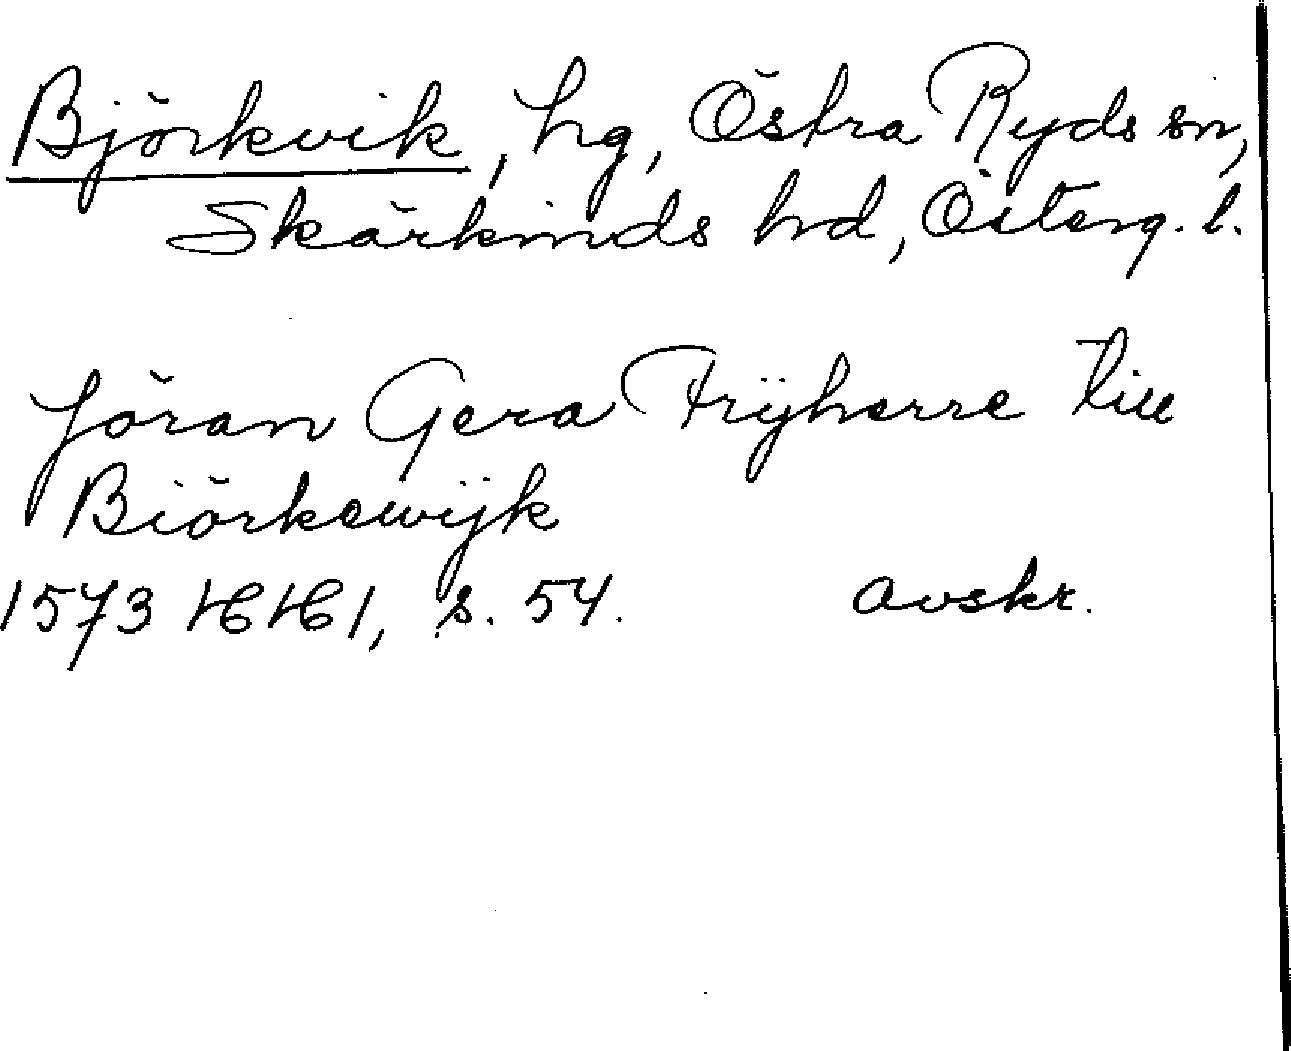 Björkvik, hg, Östra Ryds sn,
Skärkinds hd, Österg. l.
Jöran Gera Frijherre till
Biörkewijk
1573 HH 1, s. 54. avskr.